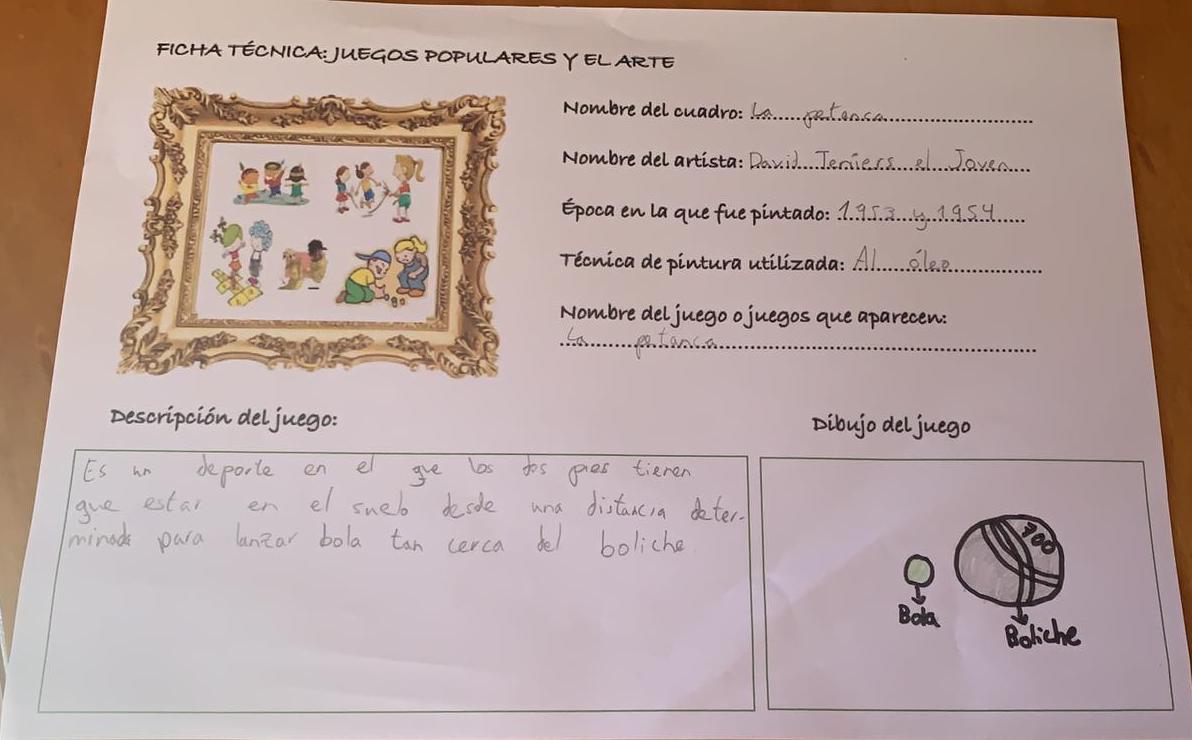 FICHA TÉCNICA: JUEGOS POPULARES Y EL ARTE
Nombre del cuadro: La petanca
Nombre del artista: David Teniers el Joven
Época en la que fue pintado: 1953 y 1954
Técnica de pintura utilizada: Al óleo
Nombre del juego o juegos que aparecen:
La petanca
Descripción del juego:
Es un deporte en el que los dos pies tienen
que estar en el suelo desde una distancia deter-
minada para lanzar bola tan cerca del boliche
Dibujo del juego
100
Bola
Boliche